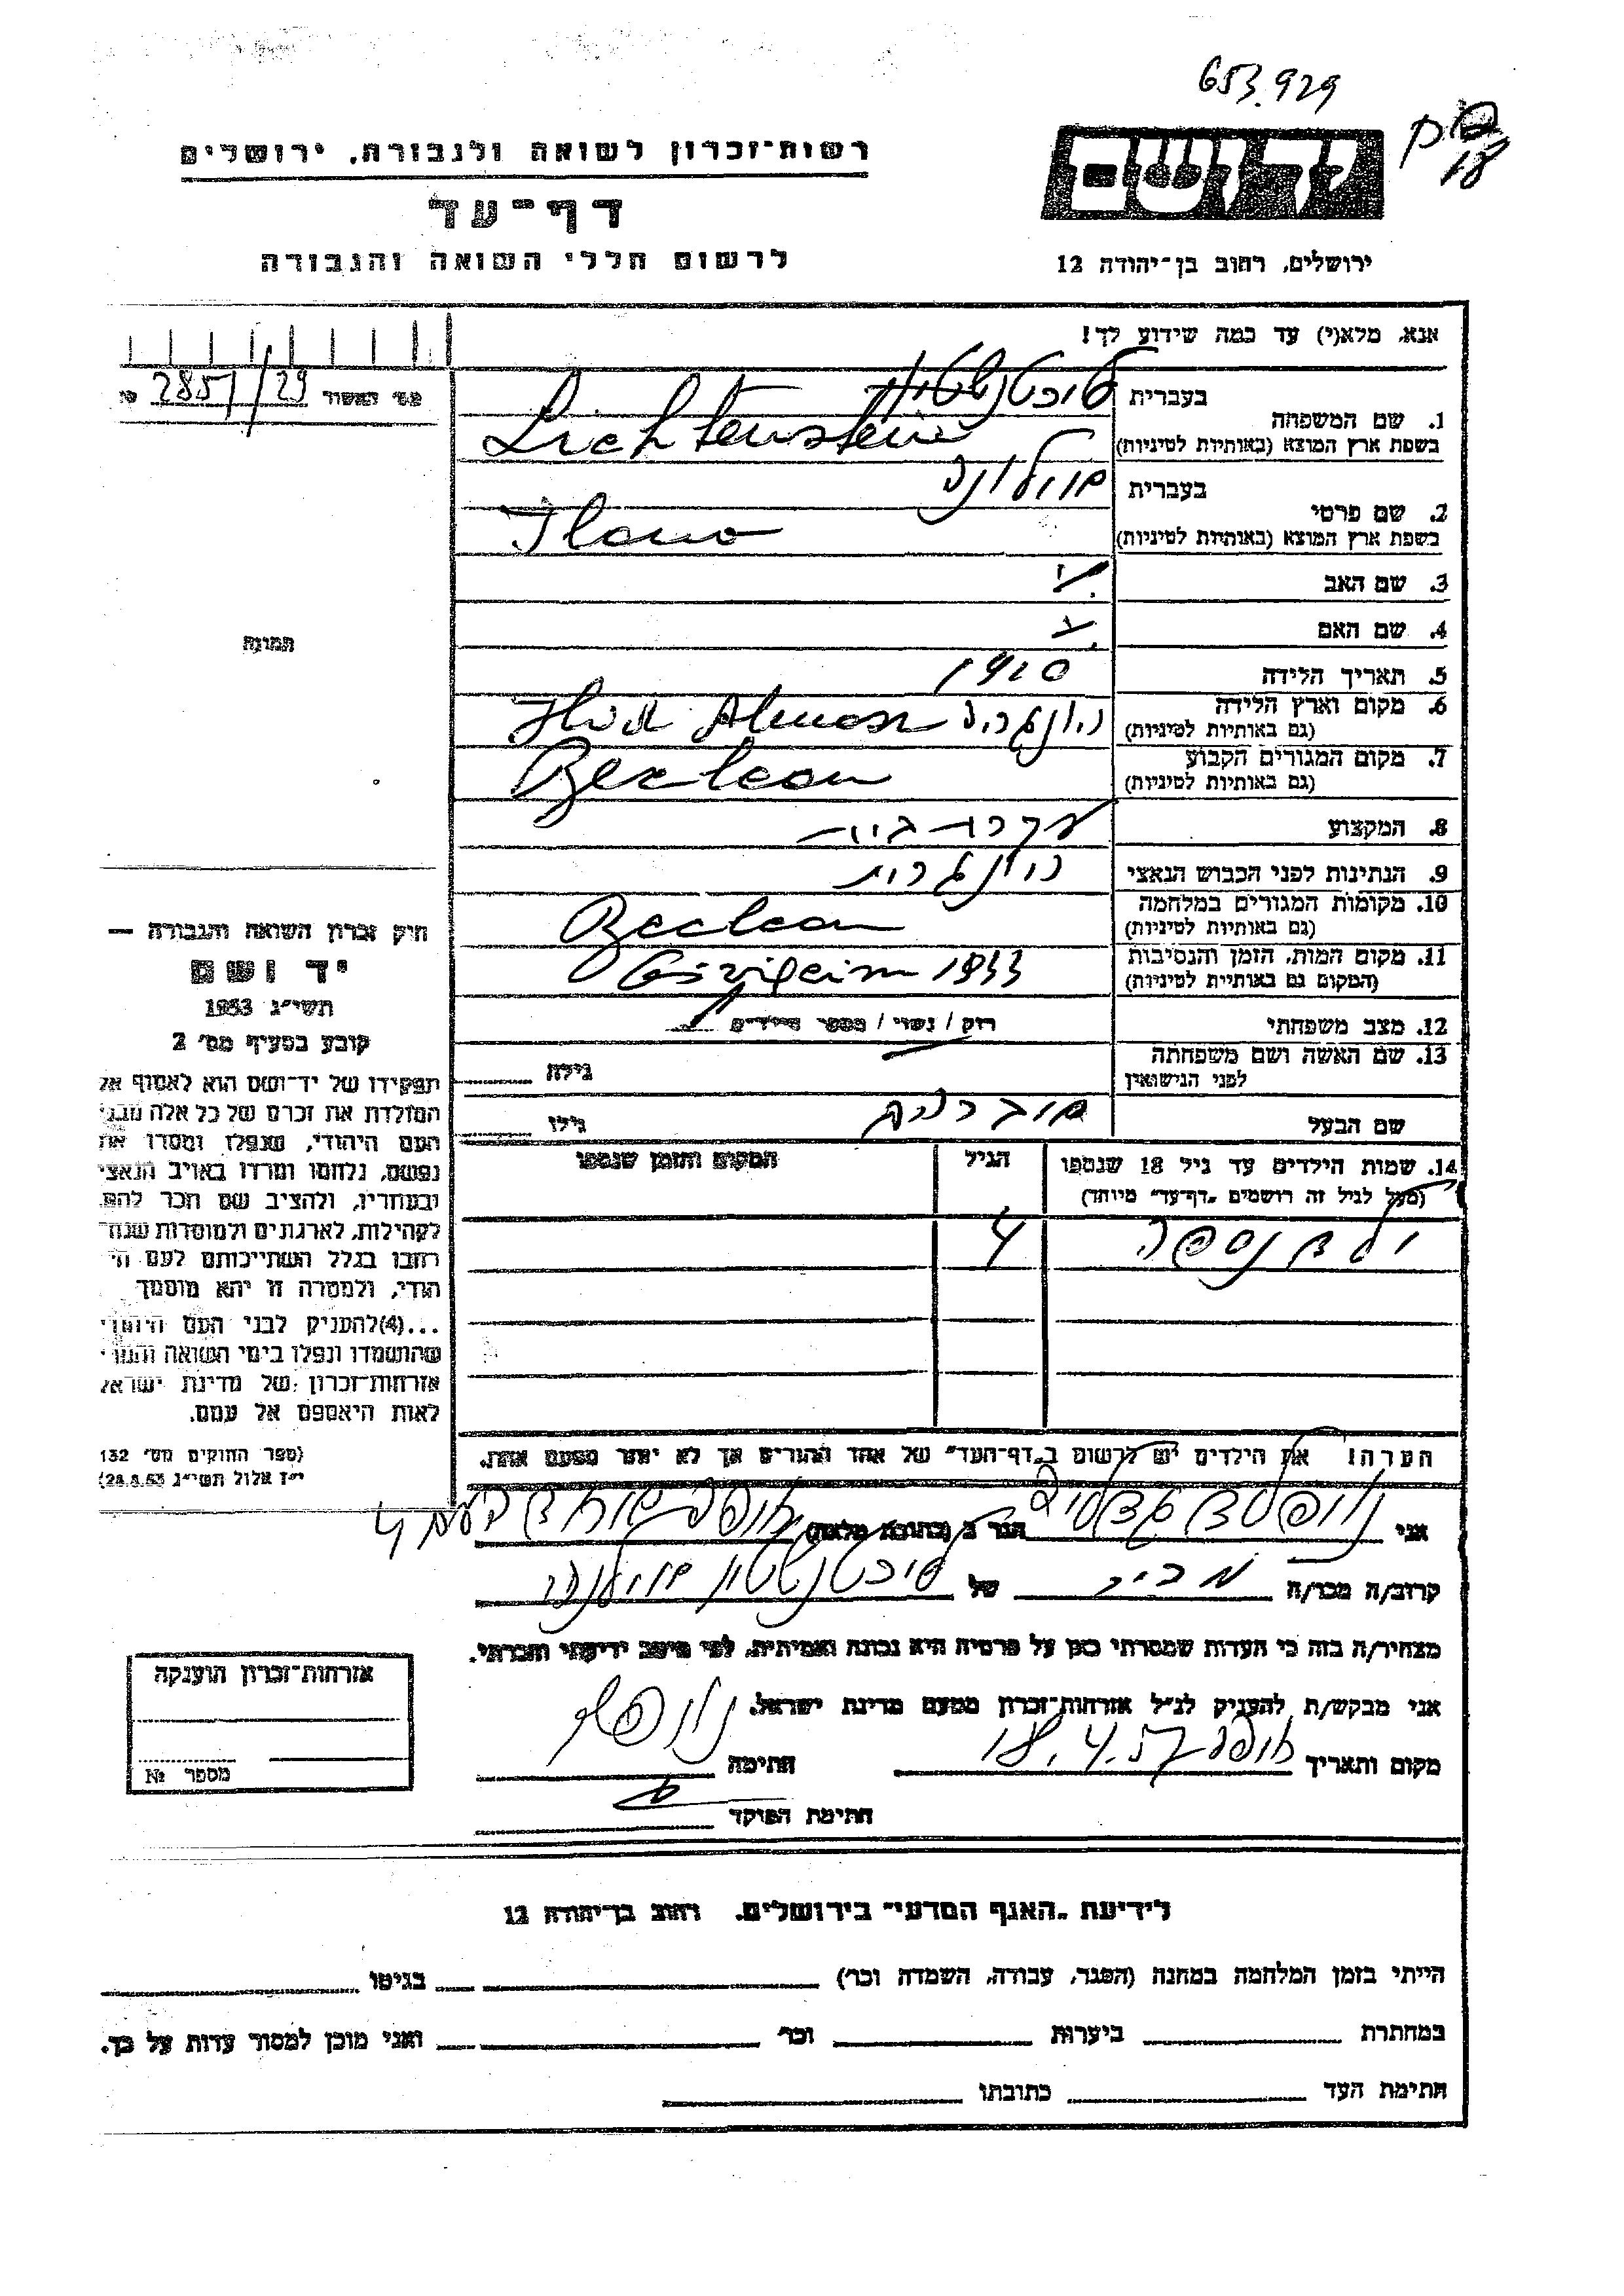 653.929
18
רשות־זכרון לשואה ולגבורה, ירושלים
דף־עד
לרשום חללי השואה והגבורה
ירושלים, רחוב בן־יהודה 12
אנא, מלא(י) עד כמה שידוע לך!
מס' האשור 2851/29
בעברית ליכטנשטיין
1. שם המשפחה
בשפת ארץ המוצא (באותיות לטיניות) Lichtenstein
בעברית
2. שם פרטי
בשפת ארץ המוצא (באותיות לטיניות) Ilona
3. שם האב
4. שם האם
תמונה
5. תאריך הלידה 1910
6. מקום וארץ הלידה
(גם באותיות לטיניות) הונגריה
7. מקום המגורים הקבוע
(גם באותיות לטיניות) Beclean
8. המקצוע עקרת בית
9. הנתינות לפני הכבוש הנאצי הונגרית
10. מקומות המגורים במלחמה
(גם באותיות לטיניות) Beclean
11. מקום המות, הזמן והנסיבות
(המקום גם באותיות לטיניות)
12. מצב משפחתי רווק / נשוי / מספר הילדים
13. שם האשה ושם משפחתה
לפני הנישואין גילה
שם הבעל אברהם גילו
חוק זכרון השואה והגבורה —
יד ושם
תשי"ג 1953
קובע בסעיף מס' 2
תפקידו של יד־ושם הוא לאסוף אל
המולדת את זכרם של כל אלה מבני
העם היהודי, שנפלו ומסרו את
נפשם, נלחמו ומרדו באויב הנאצי
ובעוזריו, ולהציב שם וזכר להם,
לקהילות, לארגונים ולמוסדות שנח־
רבו בגלל השתייכותם לעם הי־
הודי, ולמטרה זו יהא מוסמך
...(4) להעניק לבני העם היהודי
שהושמדו ונפלו בימי השואה והמרי
אזרחות־זכרון של מדינת ישראל
לאות היאספם אל עמם.
(ספר החוקים מס' 132
י"ז אלול תשי"ג 28.8.53)
14. שמות הילדים עד גיל 18 שנספו
(מעל לגיל זה רושמים "דף־עד" מיוחד)
הגיל
המקום והזמן שנספו
4
הערה! את הילדים יש לרשום ב"דף־העד" של אחד ההורים אך לא יותר מפעם אחת.
אני הגר ב (כתובת מלאה)
קרוב/ה מכר/ה מכיר של ליכטנשטיין אילונה
מצהיר/ה בזה כי העדות שמסרתי כאן על פרטיה היא נכונה ואמיתית, לפי מיטב ידיעתי והכרתי.
אני מבקש/ת להעניק לנ"ל אזרחות־זכרון מטעם מדינת ישראל.
מקום ותאריך 18.4.57 חתימה
חתימת הפוקד
אזרחות־זכרון הוענקה
מספר №
לידיעת "האגף המדעי" בירושלים, רחוב בן־יהודה 12
הייתי בזמן המלחמה במחנה (הסגר, עבודה, השמדה וכו') בגיטו
במחתרת ביערות וכו' ואני מוכן למסור עדות על כך.
חתימת העד כתובתו